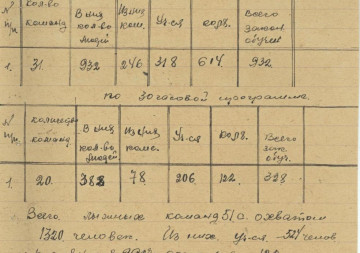 № п/п. Кол-во команд В них кол-во людей Из них ком. Уч-ся колх. Всего закон. обуч.
1. 31. 932 246 318 614 932.
по 30 часовой программе
№ п/п. команд В них кол-во людей Из них комс. Уч-ся колх. Всего зак. обуч.
1. 20. 328 78 206 122 328
Всего лыжных команд 51 с охватом
1320. человек. Из них уч-ся - 524 человек